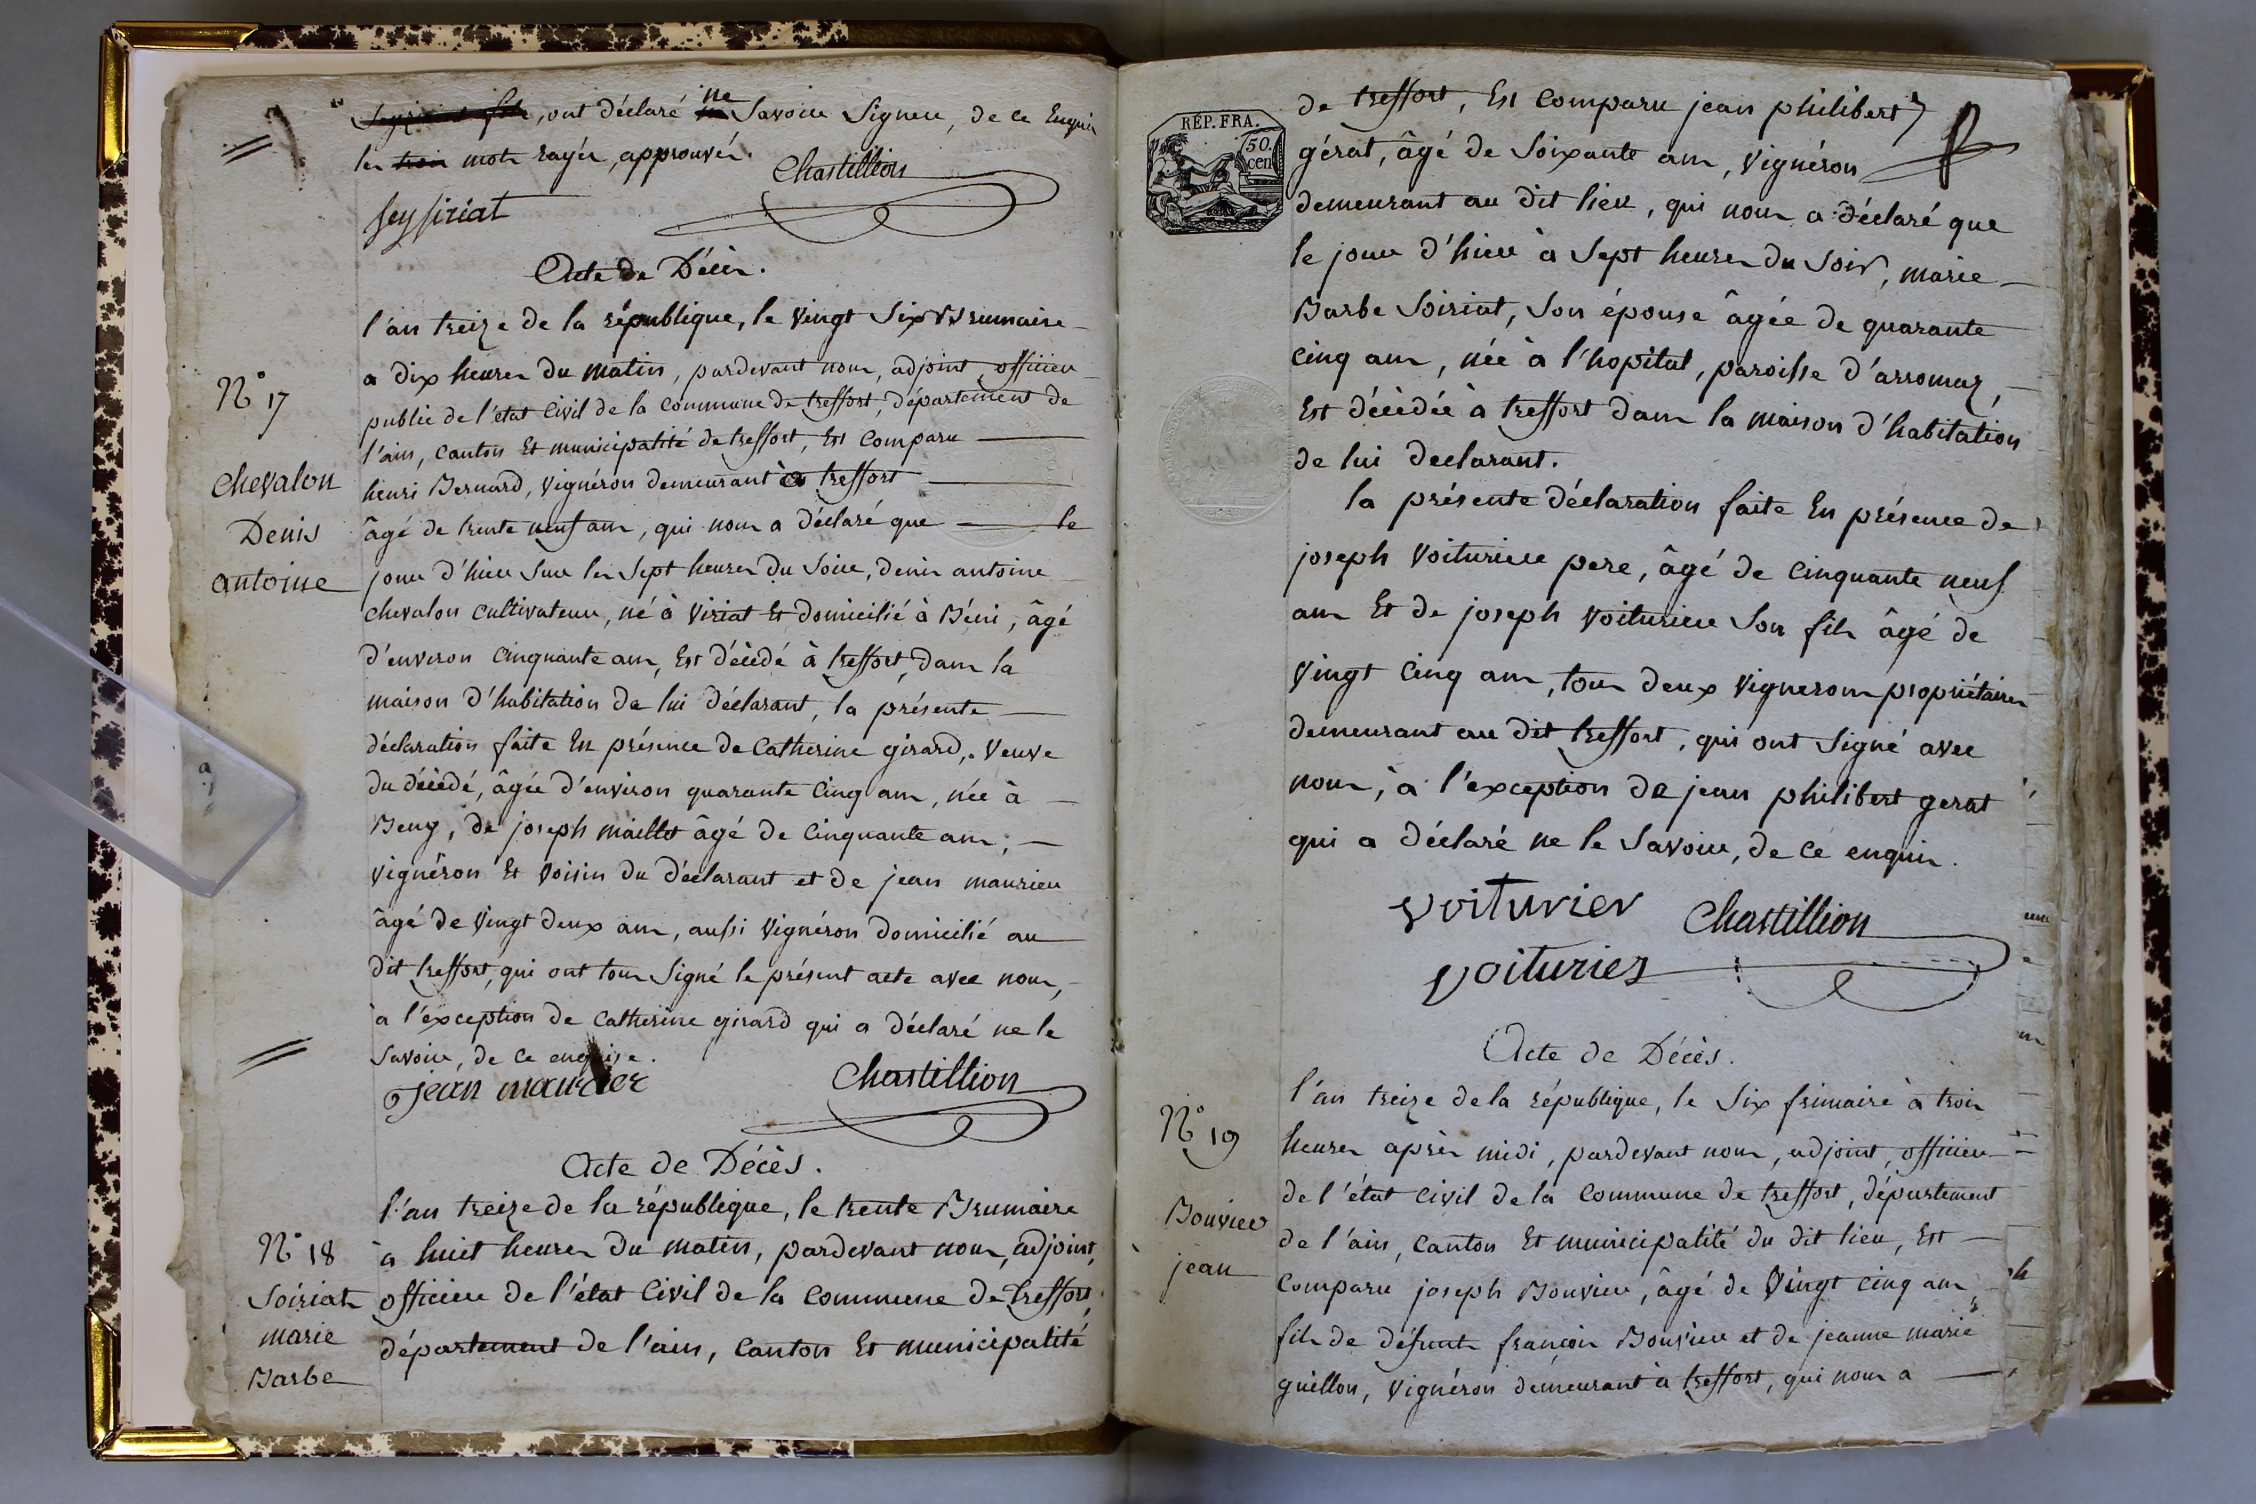 Seyziriat fils, ont déclaré ne savoir signer, de ce Enquis
les trois mots rayés, approuvés.
Chastillion
Seyssiriat
Acte de Décès.
l'an treize de la république, le vingt six Brumaire
N° 17
a dix heures du matin, pardevant nous, adjoint, officier
public de l'état civil de la commune de treffort, département de
l'ain, canton Et municipalité de treffort, Est comparu
Chevalon
henri Bernard, vignéron demeurant à treffort
Denis
âgé de trente neuf ans, qui nous a déclaré que le
antoine
jour d'hier sur les sept heures du soir, denis antoine
chevalon cultivateur, né à viriat Et domicilié à Béni, âgé
d'environ cinquante ans, Est décédé à treffort, dans la
maison d'habitation de lui déclarant, la présente
déclaration faite En présence de Catherine girard, veuve
du décédé, âgée d'environ quarante cinq ans, née à
Beny, de joseph maillet âgé de cinquante ans,
vignéron Et voisin du déclarant et de jean maurier
âgé de vingt deux ans, aussi vignéron domicilié au
dit treffort, qui ont tous signé le présent acte avec nous,
à l'exception de catherine girard qui a déclaré ne le
savoir, de ce enquise.
jean maurier
Chastillion
Acte de Décès.
l'an treize de la république, le trente Brumaire
N° 18
à huit heures du matin, pardevant nous, adjoint,
Soiriat
officier de l'état civil de la commune de treffort,
marie
département de l'ain, canton Et municipalité
Barbe
RÉP. FRA.
50. cen
de treffort, Est comparu jean philibert
gérat, âgé de soixante ans, vignéron
demeurant au dit lieu, qui nous a déclaré que
le jour d'hier à sept heures du soir, marie
Barbe Soiriat, son épouse âgée de quarante
cinq ans, née à l'hopital, paroisse d'arromaz,
Est décédée à treffort dans la maison d'habitation
de lui declarant.
la présente déclaration faite En présence de
joseph voiturier pere, âgé de cinquante neuf
ans Et de joseph voiturier son fils âgé de
vingt cinq ans, tous deux vignerons propriétaires
demeurant au dit treffort, qui ont signé avec
nous, à l'exception de jean philibert gerat
qui a déclaré ne le savoir, de ce enquis.
voiturier
Chastillion
voiturier
Acte de Décès.
l'an treize de la république, le six frimaire à trois
N° 19
heures après midi, pardevant nous, adjoint, officier
de l'état civil de la commune de treffort, département
Bouvier
de l'ain, canton Et municipalité du dit lieu, Est
jean
comparu joseph Bouvier, âgé de vingt cinq ans
fils de défunt françois Bouvier et de jeanne marie
guillon, vignéron demeurant à treffort, qui nous a